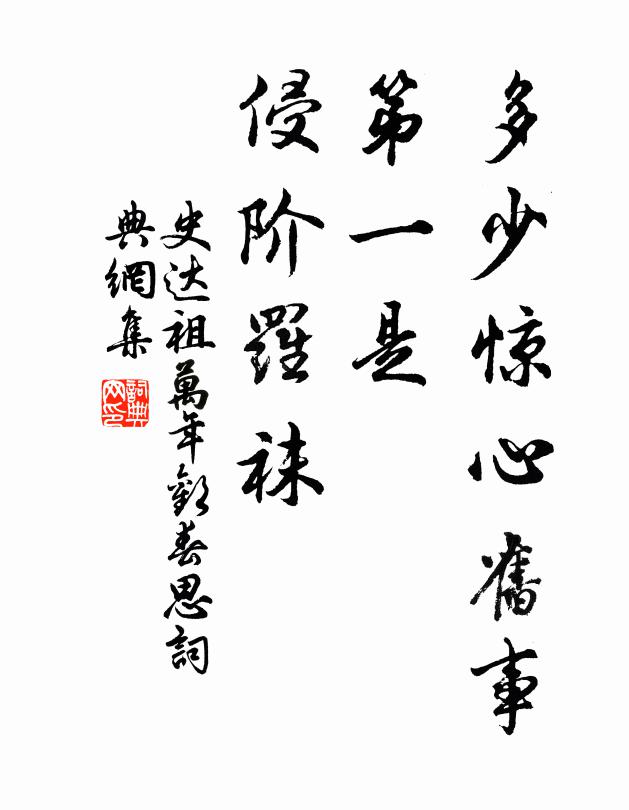 多少惊心舊事
第一是
侵阶羅袜
史达祖萬年歡春思詞
典網集
詞典網印